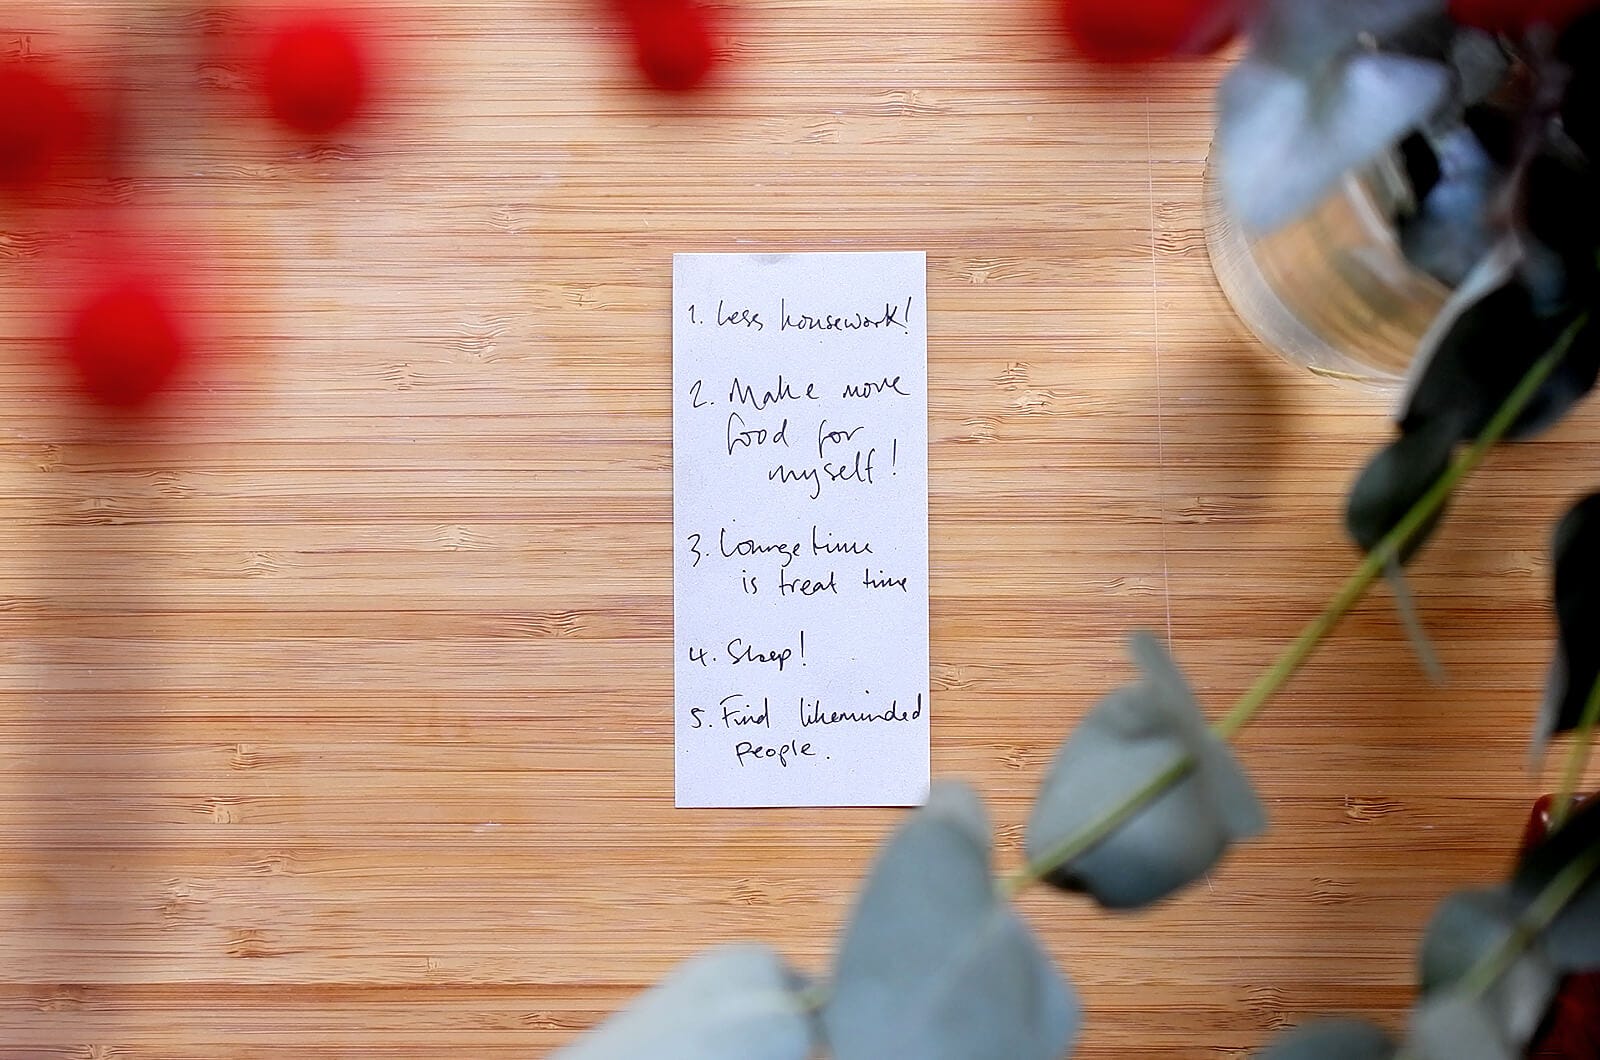 1. Less housework!
2. Make more
food for
myself!
3. Lounge time
is treat time
4. Sleep!
5. Find likeminded
people.